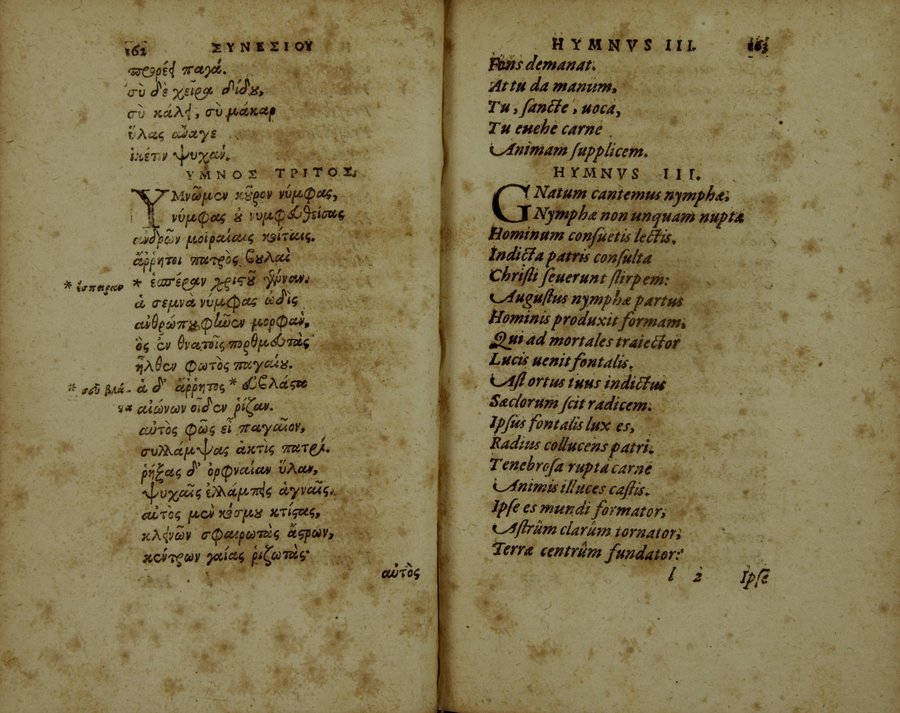 162 ΣΥΝΕΣΙΟΥ
προρέει παγά.
σὺ δὲ χεῖρα δίδου,
σὺ κάλει, σὺ μάκαρ
ὕλας ἄναγε
ἱκέτιν ψυχάν.
ΥΜΝΟΣ ΤΡΙΤΟΣ.
ΥΜνῶμεν κοῦρον νύμφας,
νύμφας οὐ νυμφευθείσας
ἀνδρῶν μοιραίαις κοίταις.
ἄῤῥητοι πατρὸς βουλαὶ
* ἔσπειραν * ἑσπέραν χριστοῦ γένναν.
ἁ σεμνὰ νύμφας ὠδὶς
ἀνθρώπου φῆνεν μορφάν,
ὃς ἐν θνατοῖς πορθμευτὰς
ἦλθεν φωτὸς παγαίου.
* σοῦ βλά- ἁ δ' ἄῤῥητος *
αἰώνων οἶδεν ῥίζαν.
αὐτὸς φῶς εἶ παγαῖον,
συλλάμψας ἀκτὶς πατρί.
ῥήξας δ' ὀρφναίαν ὕλαν,
ψυχαῖς ἐλλάμπεις ἁγναῖς.
αὐτὸς μὲν κόσμου κτίστας,
κλεινῶν σφαιρωτὰς ἄστρων,
κέντρων γαίας ῥιζωτάς·
αὐτὸς
HYMNVS III. 163
Fons demanat.
At tu da manum,
Tu, sancte, uoca,
Tu euehe carne
Animam supplicem.
HYMNVS III.
GNatum cantemus nymphæ,
Nymphæ non unquam nuptæ
Hominum consuetis lectis.
Indicta patris consulta
Christi seuerunt stirpem:
Augustus nymphæ partus
Hominis produxit formam,
Qui ad mortales traiector
Lucis uenit fontalis.
Ast ortus tuus indictus
Sæclorum scit radicem.
Ipsus fontalis lux es,
Radius collucens patri.
Tenebrosa rupta carne
Animis illuces castis.
Ipse es mundi formator,
Astrûm clarûm tornator,
Terræ centrûm fundator:
l 2 Ipse